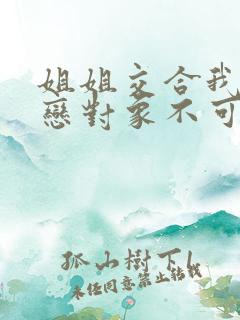 姐姐交合我
戀對象不可
孤小樹下l
未經同意禁止轉載